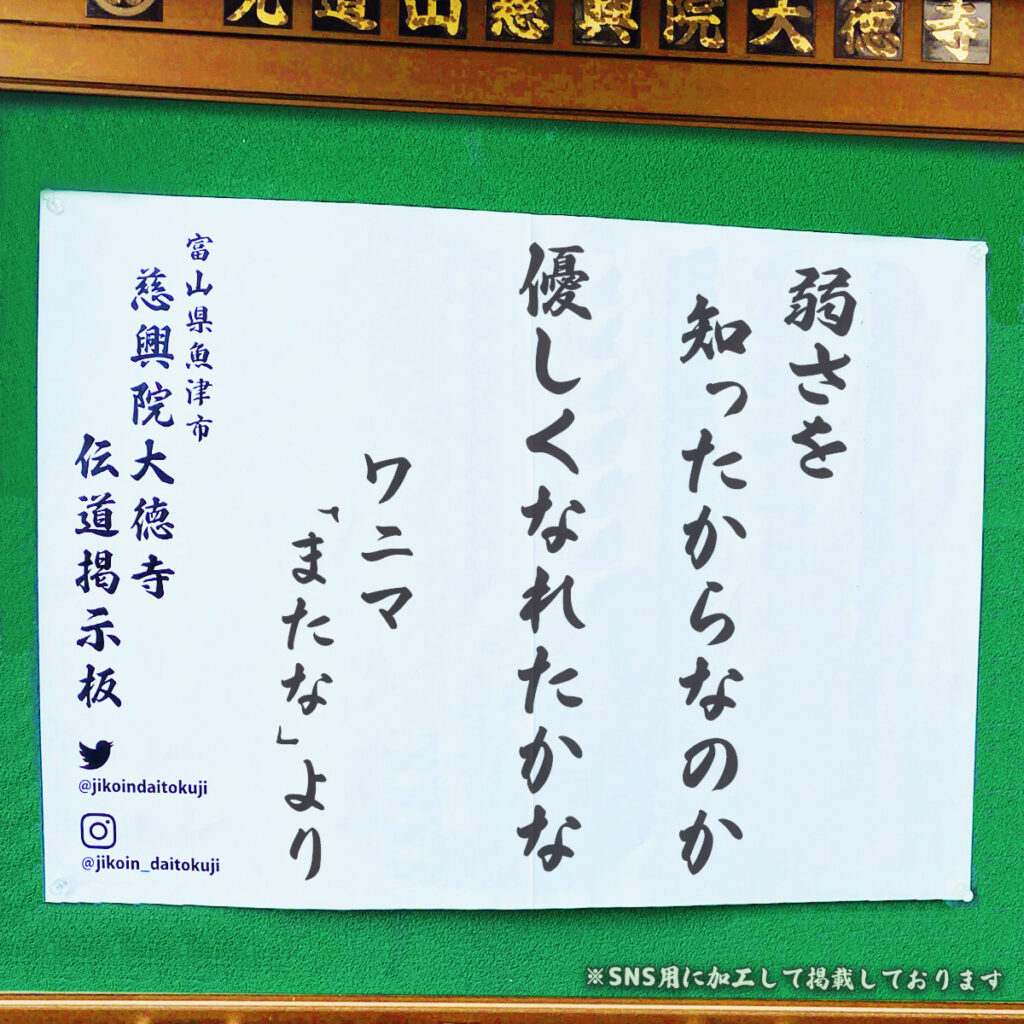 道山慈興院大徳寺
弱さを
知ったからなのか
優しくなれたかな
ワニマ
「またな」より
富山県魚津市
慈興院大徳寺
伝道掲示板
@jikoindaitokuji
@jikoin_daitokuji
※SNS用に加工して掲載しております